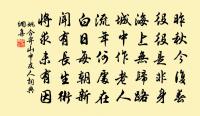 昨秋今復春
役役是非身
海上無歸路
城中作老人
流年何處在
白日每朝新
聞有長生術
將求未有因
姚合寄山中友人詞典
網集